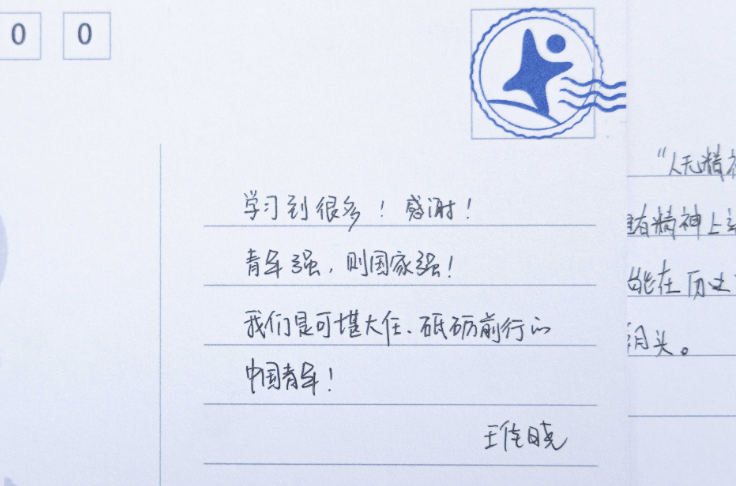 0 0
学习到很多！感谢！
青年强，则国家强！
我们是可堪大任、砥砺前行的
中国青年！
王佳晓
"人无精神
有精神上
能在历史
头。